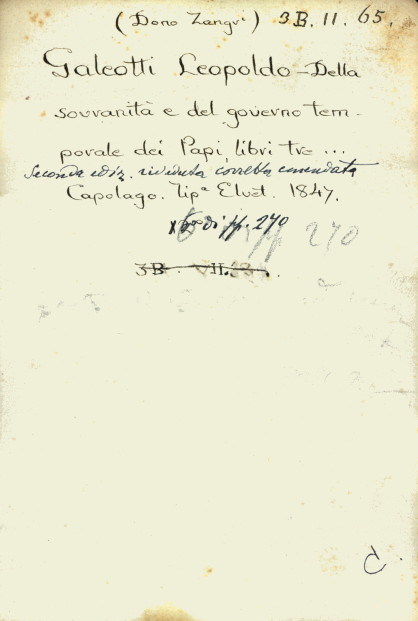 (Dono Zangri) 3B. 11. 65.
Galeotti Leopoldo - Della
sovranità e del governo tem-
porale dei Papi, libri tre ...
Seconda ediz. riveduta corretta emendata
Capolago. Tip.ª Elvet. 1847.
pp. 270
pp 270
3B. VII.
C.